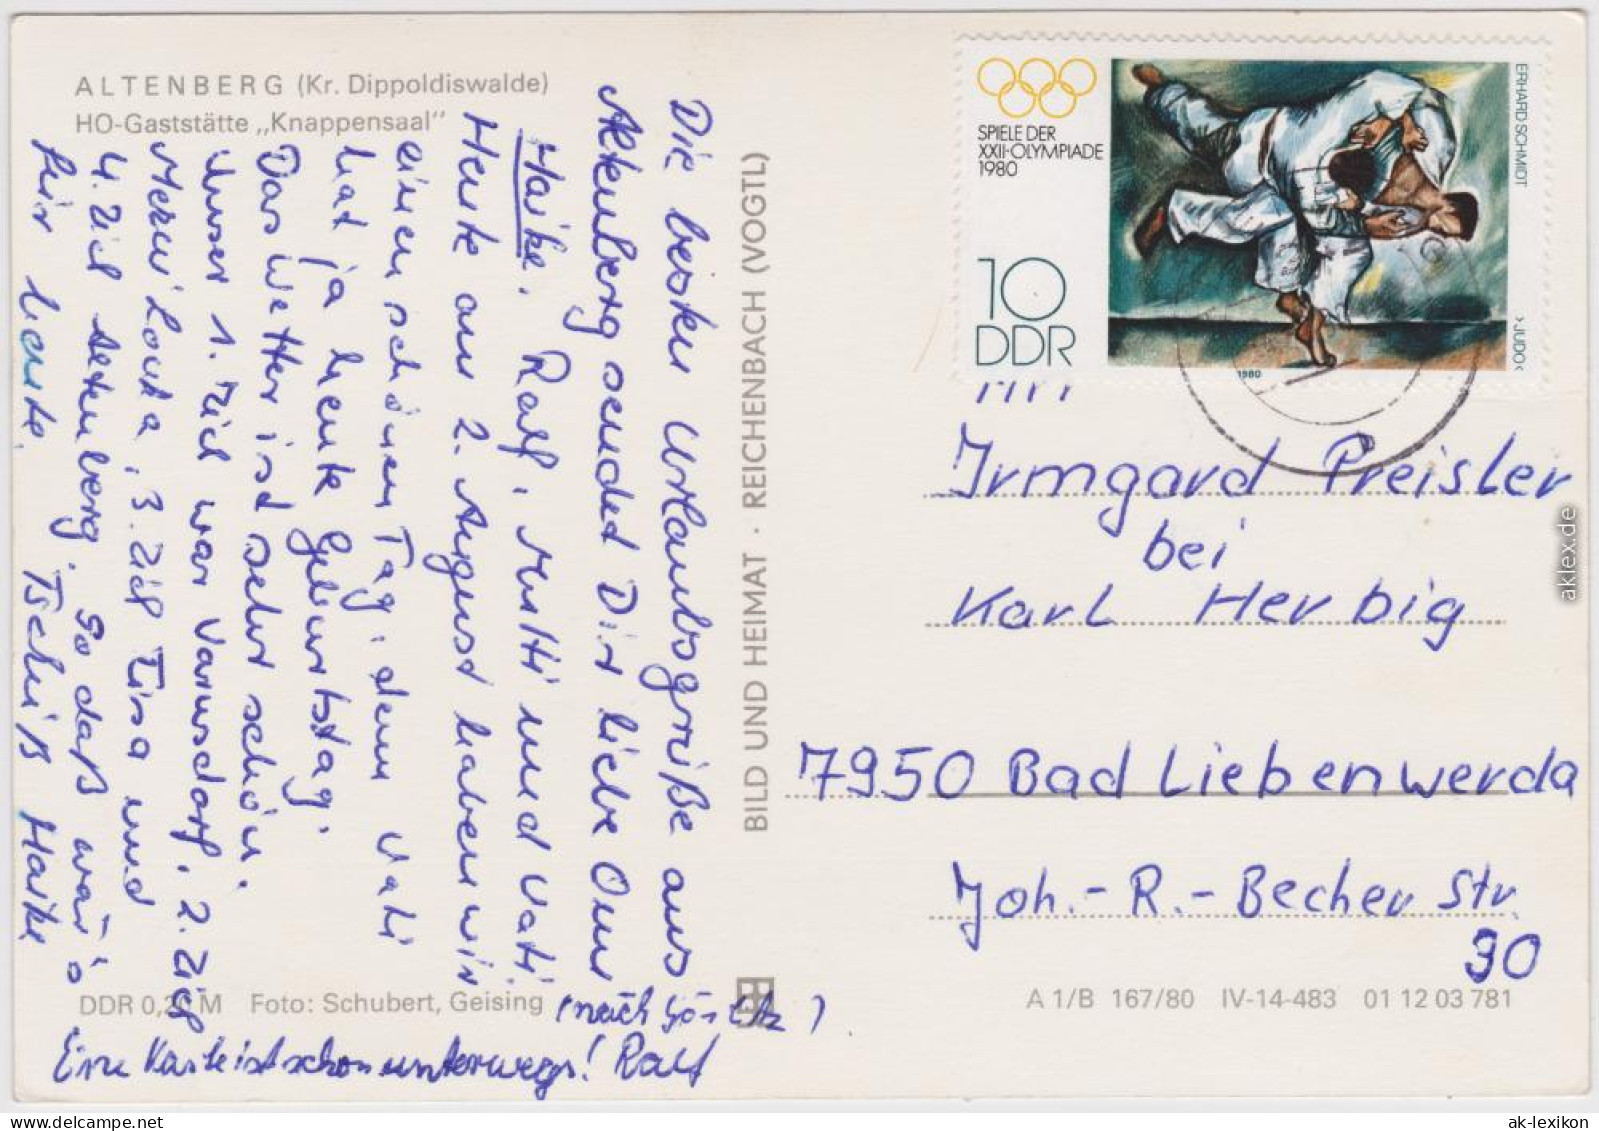 ALTENBERG (Kr. Dippoldiswalde)
HO-Gaststätte „Knappensaal"
Die besten Urlaubsgrüße aus
Altenberg sendet Dir liebe Oma
Haike, Ralf, Mutti und Vati.
Heute am 2. August haben wir
einen schönen Tag, denn Vati
hat ja heute Geburtstag.
Das Wetter ist sehr schön.
Unser 1. Ziel war Varnsdorf, 2. Ziel
3. Ziel Eisa und
4. Ziel Altenberg. So daß wär's
für heute. Tschüß Haike
(nach Görlitz)
Eine Karte ist schon unterwegs! Ralf
BILD UND HEIMAT · REICHENBACH (VOGTL)
SPIELE DER
XXII·OLYMPIADE
1980
10
DDR
ERHARD SCHMIDT
›JUDO‹
1980
Irmgard Preisler
bei
Karl Herbig
7950 Bad Liebenwerda
Joh.-R.-Becher Str.
90
DDR 0,20 M Foto: Schubert, Geising
A 1/B 167/80 IV-14-483 01 12 03 781
aklex.de
ak-lexikon